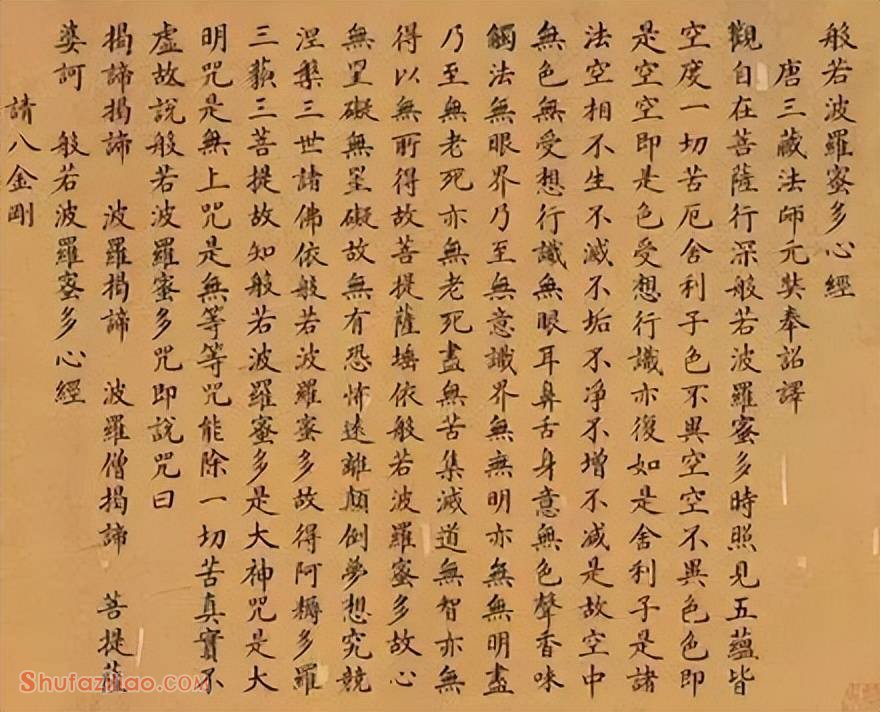 般若波羅蜜多心經
唐三藏法師元奘奉詔譯
觀自在菩薩行深般若波羅蜜多時照見五蘊皆
空度一切苦厄舍利子色不異空空不異色色即
是空空即是色受想行識亦復如是舍利子是諸
法空相不生不滅不垢不净不增不减是故空中
無色無受想行識無眼耳鼻舌身意無色聲香味
觸法無眼界乃至無意識界無無明亦無無明盡
乃至無老死亦無老死盡無苦集滅道無智亦無
得以無所得故菩提薩埵依般若波羅蜜多故心
無罣礙無罣礙故無有恐怖遠離顛倒夢想究竟
涅槃三世諸佛依般若波羅蜜多故得阿耨多羅
三藐三菩提故知般若波羅蜜多是大神咒是大
明咒是無上咒是無等等咒能除一切苦真實不
虛故說般若波羅蜜多咒即說咒曰
揭諦揭諦　波羅揭諦　波羅僧揭諦　菩提薩
婆訶　般若波羅蜜多心經
請八金剛